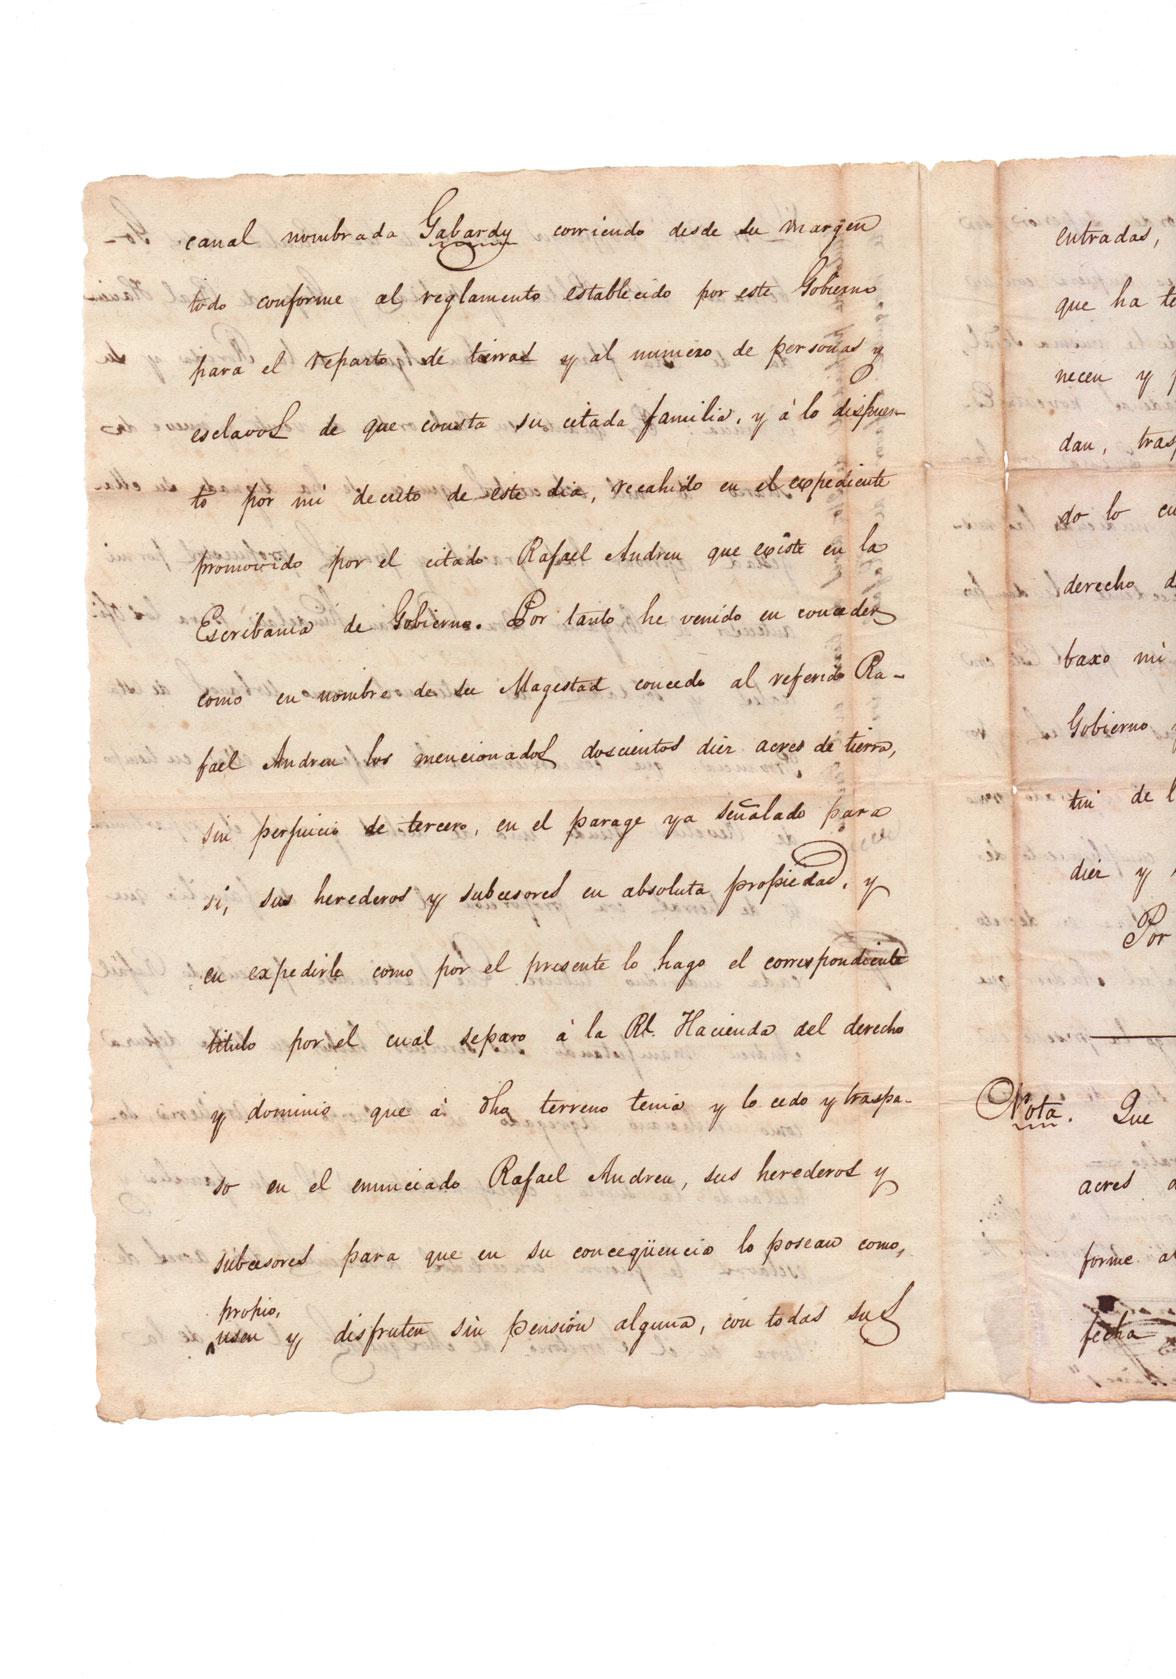 canal nombrada Gabardy corriendo desde su margen
todo conforme al reglamento establecido por este Gobierno
para el reparto de tierras y al numero de personas y
esclavos de que consta su citada familia, y á lo dispues-
to por mi decreto de este dia, recahido en el expediente
promovido por el citado Rafael Andreu que existe en la
Escribania de Gobierno. Por tanto he venido en conceder
como en nombre de su Magestad concedo al referido Ra-
fael Andreu los mencionados doscientos diez acres de tierra,
sin perjuicio de tercero, en el parage ya señalado para
si, sus herederos y subcesores en absoluta propiedad, y
en expedirle como por el presente lo hago el correspondiente
titulo por el cual separo á la Rl. Hacienda del derecho
y dominio que á dho terreno tenia y lo cedo y traspa-
so en el enunciado Rafael Andreu, sus herederos y
subcesores para que en su conceqüencia lo posean como,
propio,
usen y disfruten sin pensión alguna, con todas sus
entradas,
que ha te
necen y p
dan, trasp
do lo cu
derecho d
baxo mi
Gobierno
tin de l
diez y
Por
Nota. Que
acres d
forme al
fecha